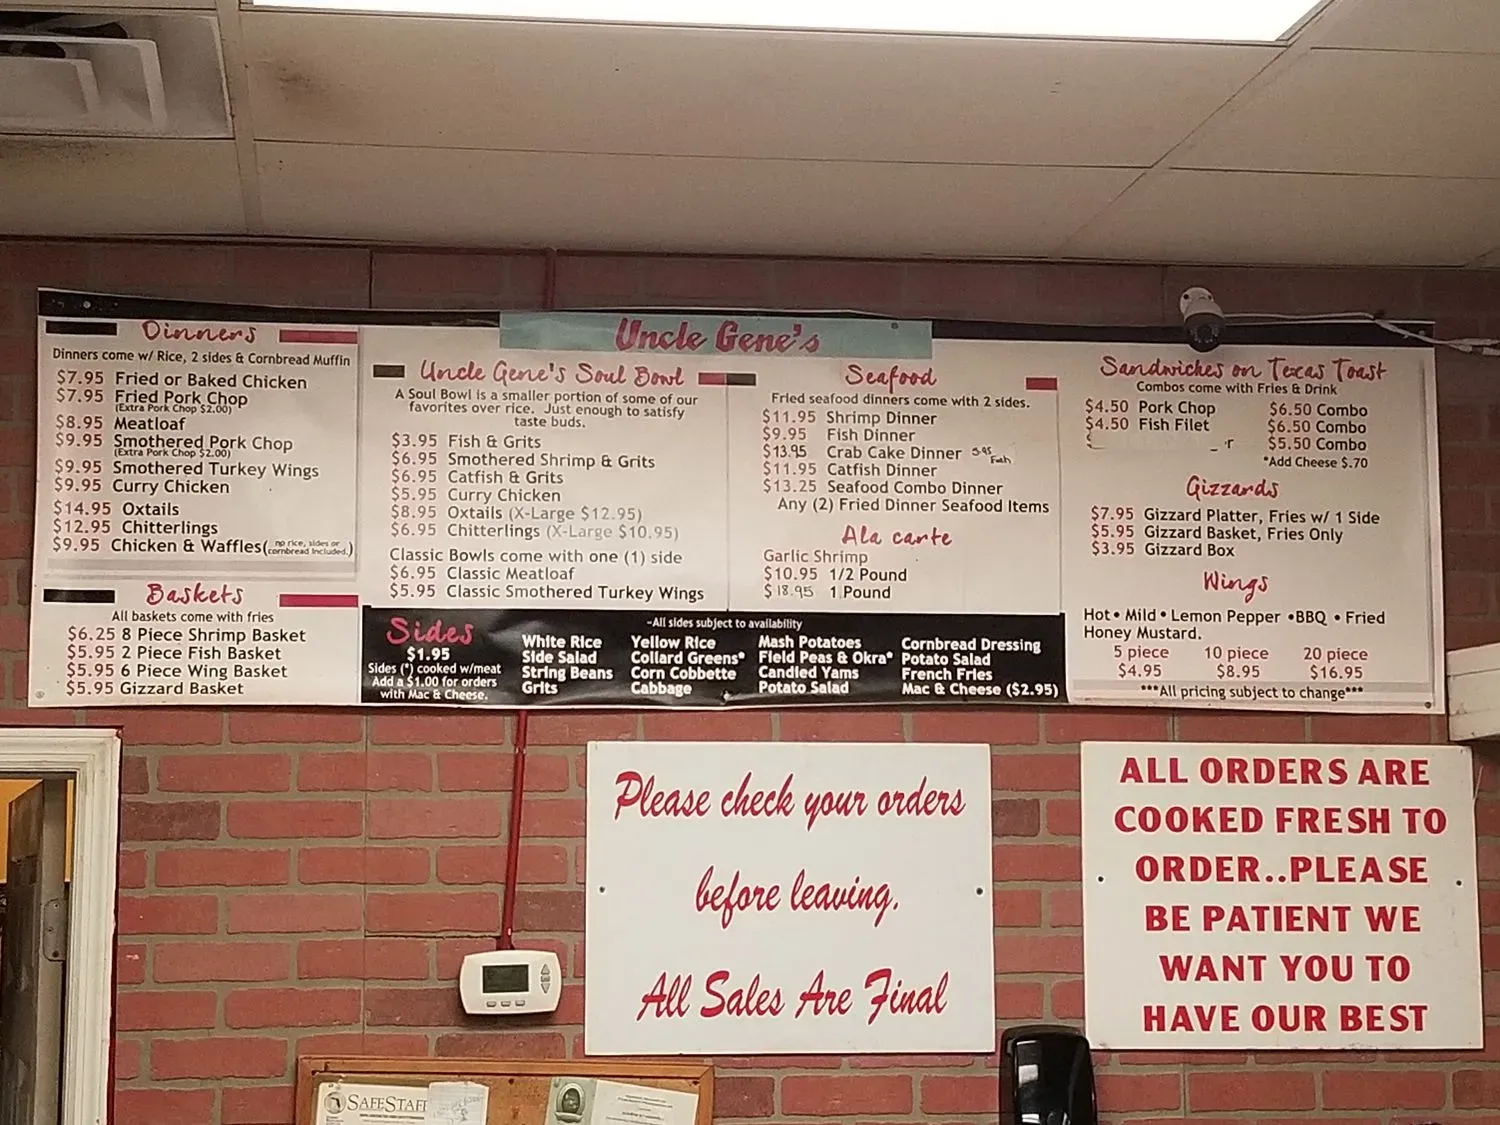 Uncle Gene's
Dinners
Dinners come w/ Rice, 2 sides & Cornbread Muffin
$7.95 Fried or Baked Chicken
$7.95 Fried Pork Chop
(Extra Pork Chop $2.00)
$8.95 Meatloaf
$9.95 Smothered Pork Chop
(Extra Pork Chop $2.00)
$9.95 Smothered Turkey Wings
$9.95 Curry Chicken
$14.95 Oxtails
$12.95 Chitterlings
$9.95 Chicken & Waffles(no rice, sides or
cornbread included.)
Baskets
All baskets come with fries
$6.25 8 Piece Shrimp Basket
$5.95 2 Piece Fish Basket
$5.95 6 Piece Wing Basket
$5.95 Gizzard Basket
Uncle Gene's Soul Bowl
A Soul Bowl is a smaller portion of some of our
favorites over rice. Just enough to satisfy
taste buds.
$3.95 Fish & Grits
$6.95 Smothered Shrimp & Grits
$6.95 Catfish & Grits
$5.95 Curry Chicken
$8.95 Oxtails (X-Large $12.95)
$6.95 Chitterlings (X-Large $10.95)
Classic Bowls come with one (1) side
$6.95 Classic Meatloaf
$5.95 Classic Smothered Turkey Wings
Seafood
Fried seafood dinners come with 2 sides.
$11.95 Shrimp Dinner
$9.95 Fish Dinner
$13.95 Crab Cake Dinner 5.95 Each
$11.95 Catfish Dinner
$13.25 Seafood Combo Dinner
Any (2) Fried Dinner Seafood Items
Ala carte
Garlic Shrimp
$10.95 1/2 Pound
$18.95 1 Pound
Sides
$1.95
Sides (*) cooked w/meat
Add a $1.00 for orders
with Mac & Cheese.
~All sides subject to availability
White Rice Yellow Rice Mash Potatoes Cornbread Dressing
Side Salad Collard Greens* Field Peas & Okra* Potato Salad
String Beans Corn Cobbette Candied Yams French Fries
Grits Cabbage Potato Salad Mac & Cheese ($2.95)
Sandwiches on Texas Toast
Combos come with Fries & Drink
$4.50 Pork Chop $6.50 Combo
$4.50 Fish Filet $6.50 Combo
$5.50 Combo
*Add Cheese $.70
Gizzards
$7.95 Gizzard Platter, Fries w/ 1 Side
$5.95 Gizzard Basket, Fries Only
$3.95 Gizzard Box
Wings
Hot • Mild • Lemon Pepper •BBQ • Fried
Honey Mustard.
5 piece 10 piece 20 piece
$4.95 $8.95 $16.95
***All pricing subject to change***
Please check your orders
before leaving.
All Sales Are Final
ALL ORDERS ARE
COOKED FRESH TO
ORDER..PLEASE
BE PATIENT WE
WANT YOU TO
HAVE OUR BEST
SAFESTAFF